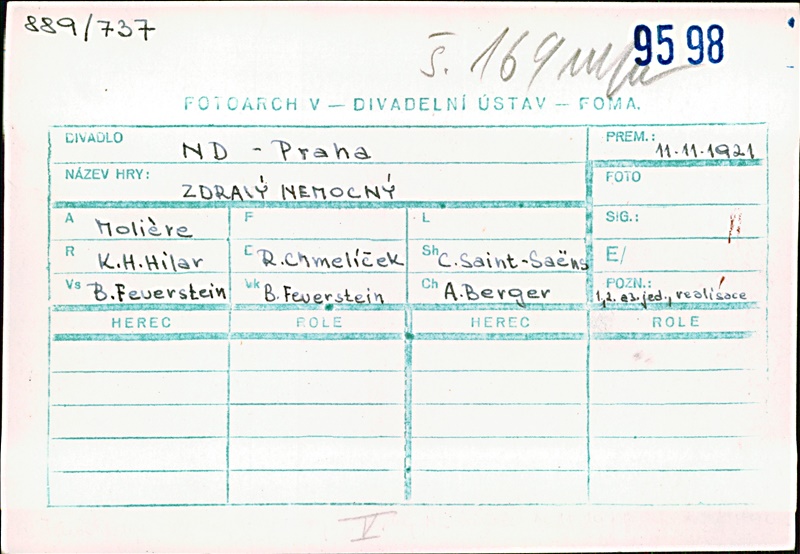 889/737
š. 169
95 98
FOTOARCH V — DIVADELNÍ ÚSTAV — FOMA.
DIVADLO ND - Praha
PREM.: 11.11.1921
NÁZEV HRY: ZDRAVÝ NEMOCNÝ
FOTO
A Molière F L SIG.:
R K.H.Hilar E R.Chmelíček Sh C.Saint-Saëns E/
Vs B.Feuerstein Vk B.Feuerstein Ch A.Berger POZN.: 1,2. a3.jed., realisace
HEREC ROLE HEREC ROLE
V